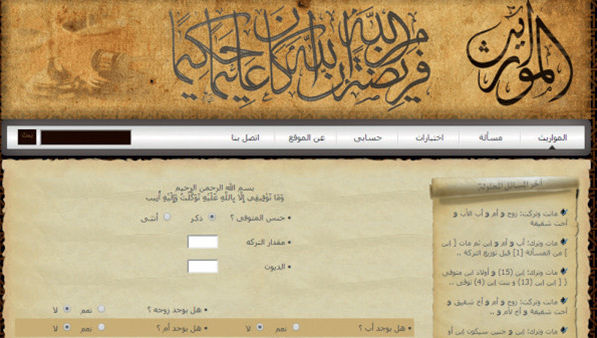 المواريث
فريضة من الله إن الله كان عليما حكيما
المواريث
مسألة
اختبارات
حسابي
عن الموقع
اتصل بنا
بحث
بسم الله الرحمن الرحيم
وَمَا تَوْفِيقِي إِلَّا بِاللَّهِ عَلَيْهِ تَوَكَّلْتُ وَإِلَيْهِ أُنِيبُ
• جنس المتوفى ؟ ذكر أنثى
• مقدار التركة
• الديون
• هل يوجد زوجة ؟ نعم لا
• هل يوجد أب ؟ نعم لا • هل يوجد أم ؟ نعم لا
آخر المسائل
ماتت وتركت: زوج و أم و أب الأب و
أخت شقيقة
مات وترك: أب و أم و ابن ثم مات [ ابن
] من المسألة [1] قبل توزيع التركة ..
مات وترك: ابن (15) و أولاد ابن متوفى
( [ ابن ابن (13) و بنت ابن (4) توفى ..
ماتت وتركت: زوج و أم و أخ شقيق و
أخت شقيقة و أخ لأم و ..
مات وترك: ابن و جنين سيكون ابن أو